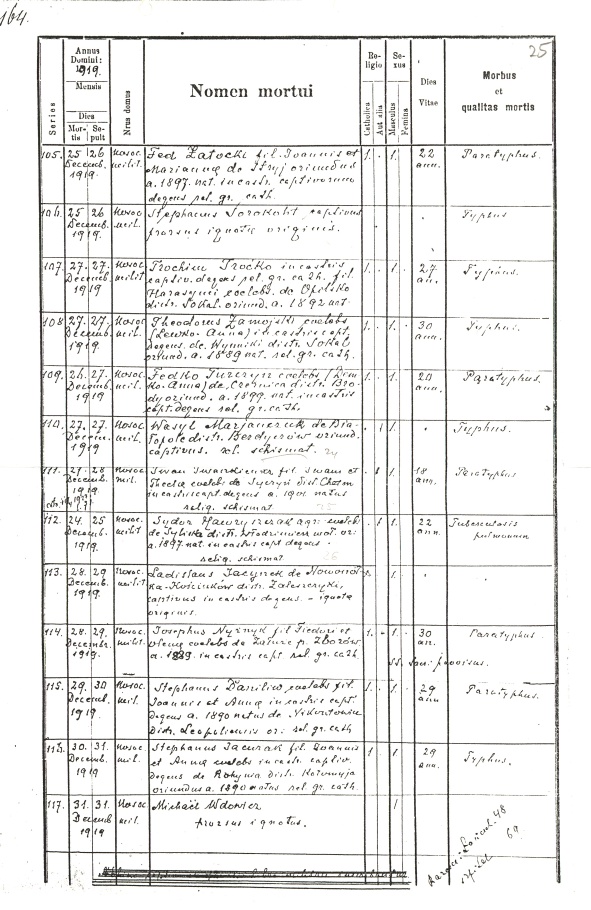 164.
25
Annus Domini: 1919.
Mensis
Dies
Mortis Sepult
Series
Nrus domus
Nomen mortui
Religio
Catholica
Aut alia
Sexus
Masculus
Femina
Dies Vitae
Morbus
et
qualitas mortis
105. 25 26 Nosoc. Fed Zatocki fil. Joannis et 1. 1. 22 Paratyphus.
Decemb. milit. Mariannae de Stryj oriundus ann.
1919. a. 1897. nat. in castr. captivorum
degens rel. gr. cath.
106. 25 26 Nosoc. Stephanus Sorokolit, captivus Typhus
Decemb. mil. prorsus ignotae originis.
1919
107. 27. 27. Nosoc. Trochim Trocko in castris 1. 1. 27 Typhus.
Decemb. milit captiv. degens rel. gr. cath. fil. an.
1919 Harasymi coelebs. de Opolsko
distr. Sokal. oriund. a. 1892 nat.
108 27. 27. Nosoc. Theodorus Zamojski coelebs 1. 1. 30 Typhus.
Decemb. mil. (Lewko-Anna) in castris capt. ann.
1919 degens. de Wynniki distr. Sokal
oriund. a. 1889 nat. rel. gr. cath.
109. 26. 27. Nosoc. Fedko Turczyn coelebs 1. 1. 20 Paratyphus.
Decemb. mil. ko-Anna) de Czernica distr. Bro- ann.
1919. dy oriund. a. 1899. nat. in castris
capt. degens rel. gr. cath.
110. 27. 27. Nosoc. Wasyl Marjanczuk de Bia- 1 1. Typhus.
Decem. mil. topole distr. Berdyczów oriund.
1919. captivus. rel. schismat.
111. 27. 28 Nosoc. Iwan Iwaszkiewicz fil. Iwani et 1 1. 18 Paratyphus
Decemb. mil. Thecla coelebs de distr. Chotm ann.
1919. in castris capt. degens a. 1901. natus
relig. schismat
112. 24. 25 Nosoc. Sydor Hawryszczak agr. coelebs 1 1. 22 Tuberculosis
Decemb. milit de distr. Włodzimierz wot. or: ann. pulmonum
1919. a. 1897. nat. in castris capt degens.
relig. schismat
113. 28. 29 Nosoc. Ladislaus Jacynek de Nowosiół-
Decemb. milit. ka-Kościuków distr. Zaleszczyki,
1919. captivus in castris degens - ignotae
originis.
114. 28. 29. Nosoc. Josephus Nyznyk fil Fiedori et 1. 1. 30 Paratyphus.
Decembr. milit. coelebs de Zatuże p. Zborów an.
1919. a. 1889. in castris capt rel. gr. cath
115. 29. 30 Nosoc. Stephanus Daniliw coelebs fil. 1. 1. 29 Paratyphus.
Decemb. mil. Joannis et Anna in castris capt. ann
1919. degens a. 1890 natus de
Distr. Leopoliensis or: rel. gr. cath
116. 30. 31. Nosoc. Stephanus Jacurak fil. Joannis 1 1 29 Typhus.
Decemb. mil. et Anna coelebs in castr. captiv. ann.
1919 degens de Rohynia distr. Kołomyja
oriundus a. 1890 natus rel. gr. cath.
117. 31. 31. Nosoc. Michaël Wdowicz 1
Decemb mil. prorsus ignotus.
1919
48
69.